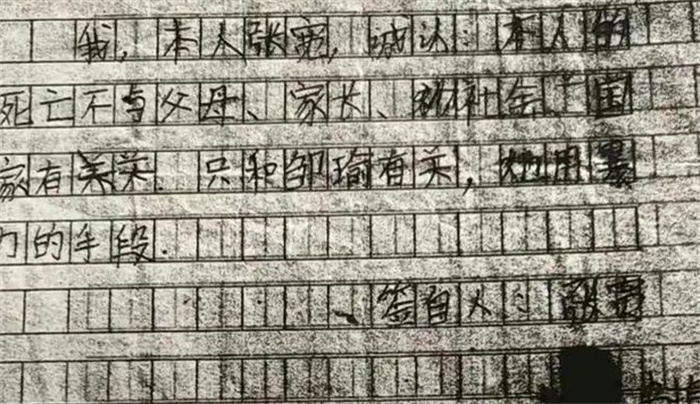 我,本人张宽,诚认:本人的
死亡不与父母、家长、社会、国
家有关,只和邹瑜有关,她用暴
力的手段.
签自人:张宽